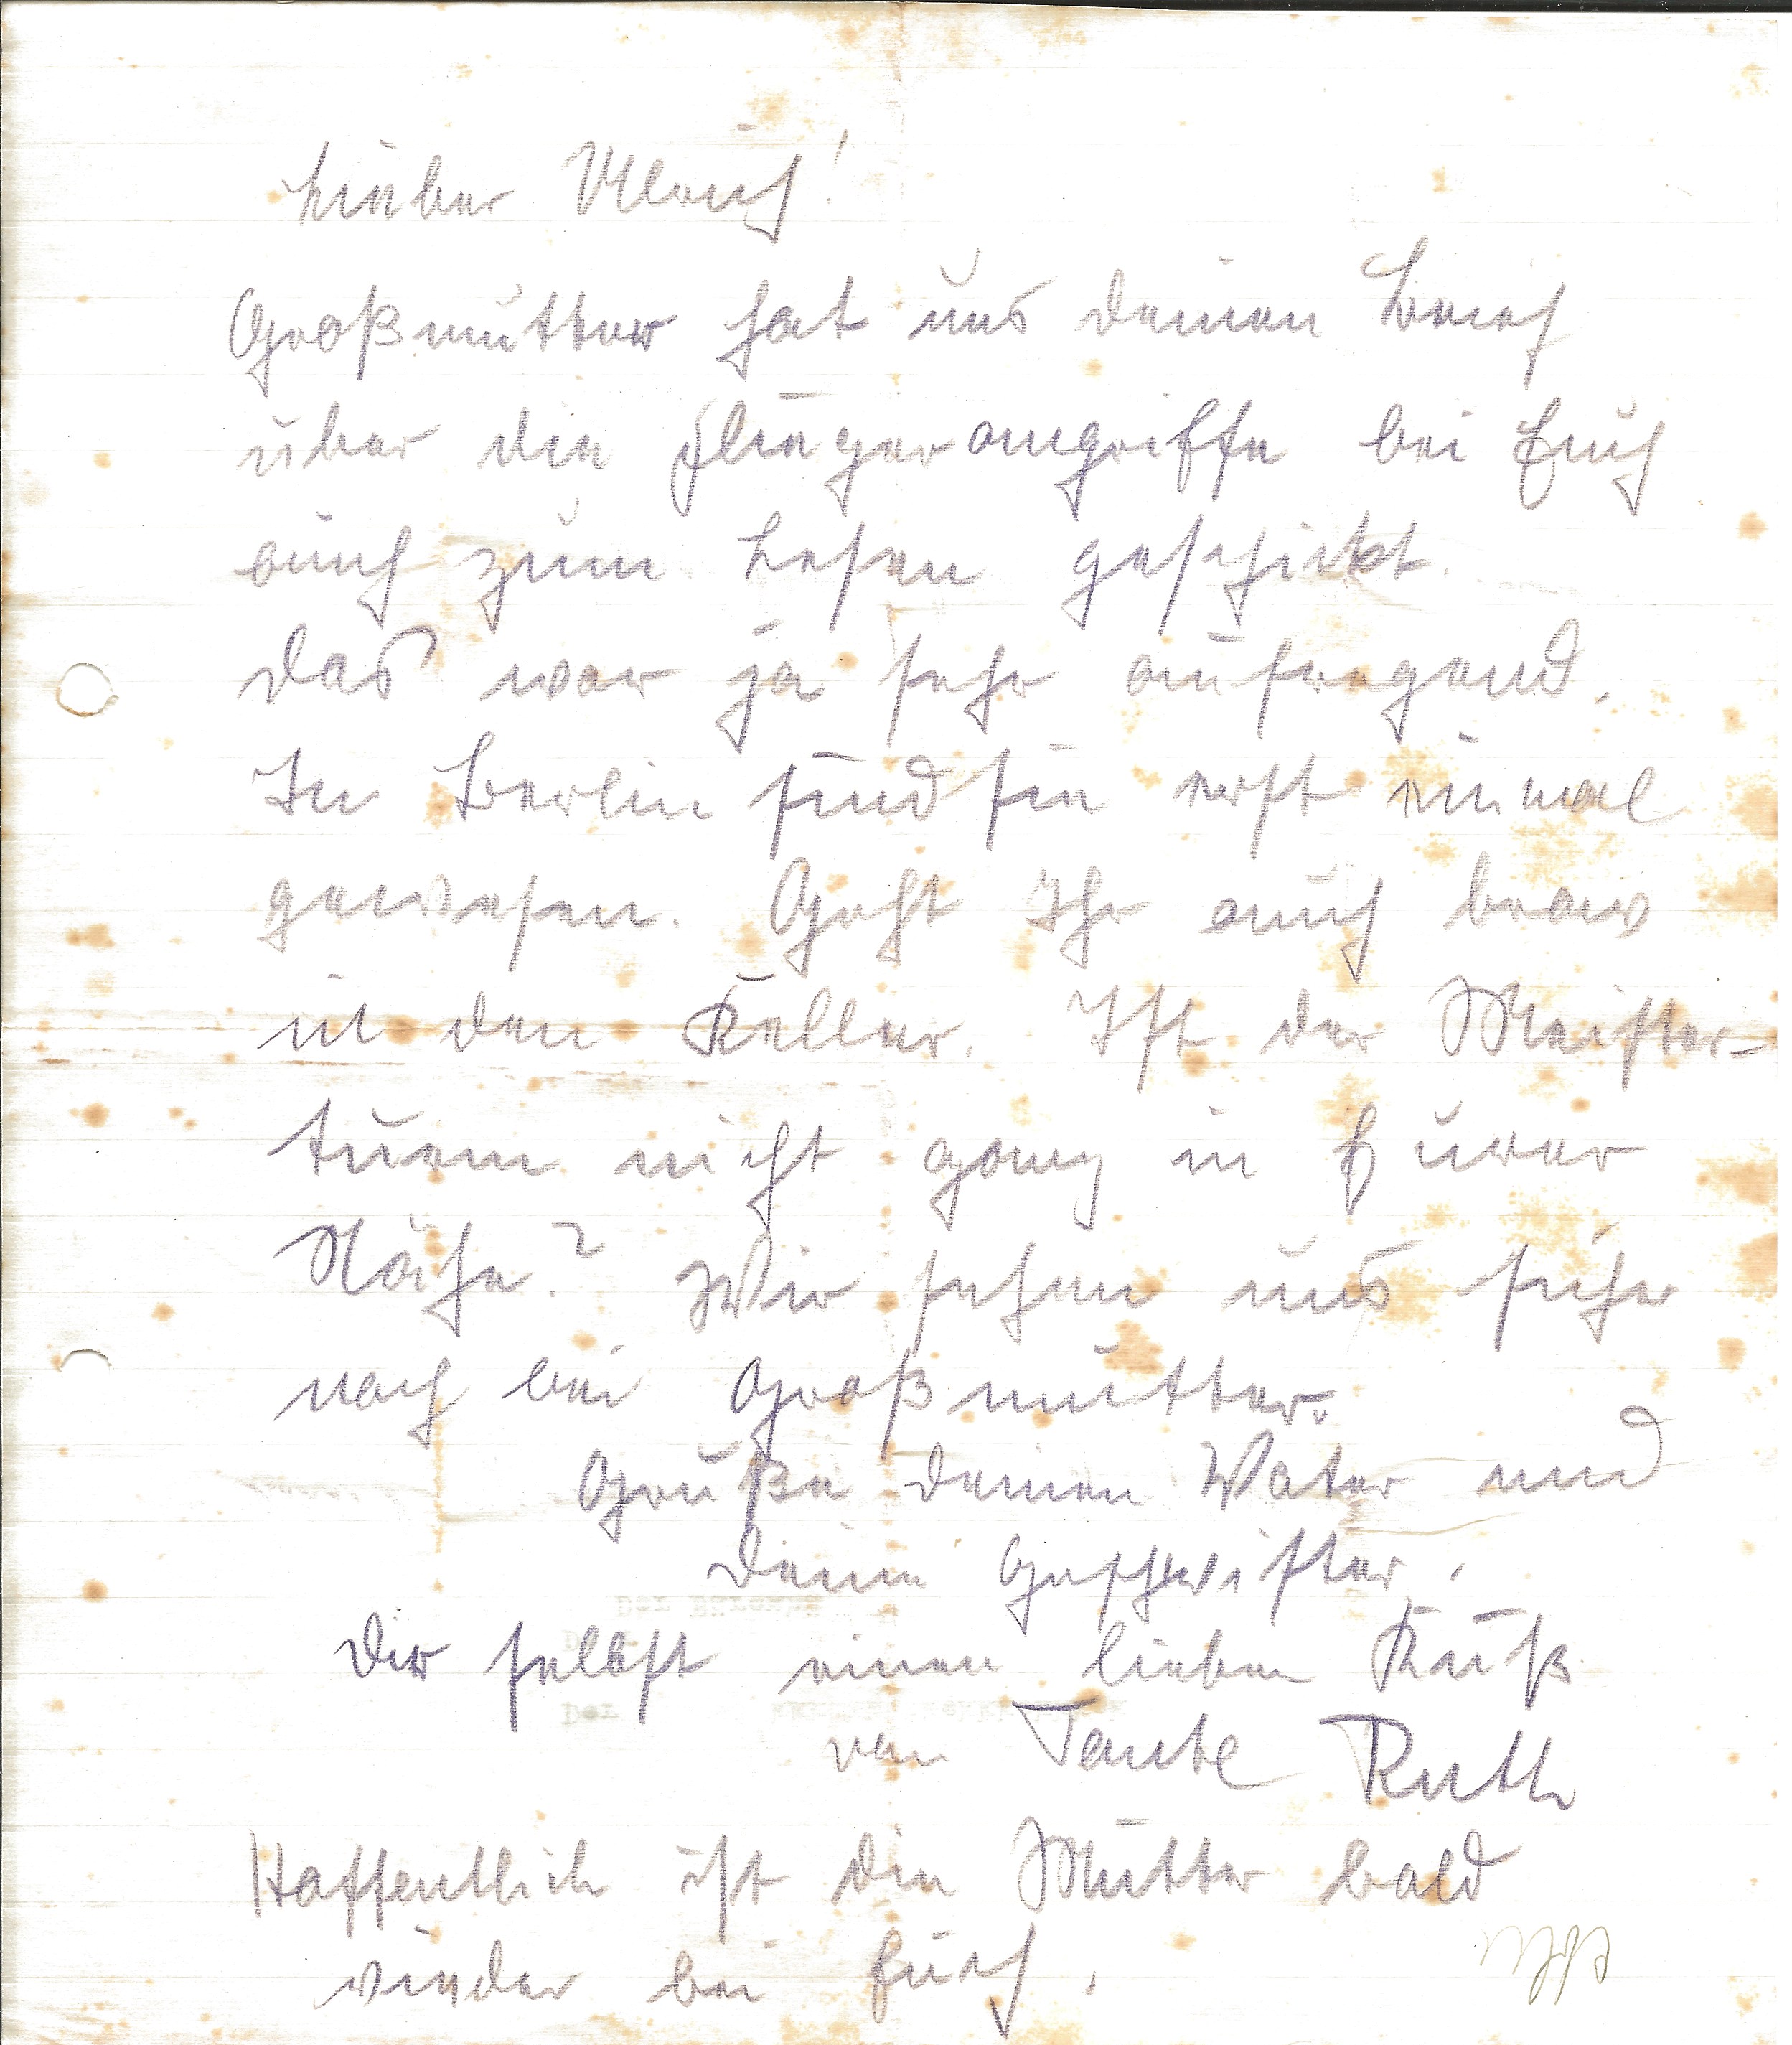 Lieber Ulrich!
Großmutter hat uns deinen Brief
über die Fliegerangriffe bei Euch
auch zum Lesen geschickt.
Das war ja sehr aufregend.
In Berlin sind sie erst einmal
gewesen. Geht Ihr auch brav
in den Keller. Ist der Meister-
turm nicht ganz in Eurer
Nähe? Wir sehen uns sicher
noch bei Großmutter.
Grüße deinen Vater und
Deine Geschwister.
Dir selbst einen lieben Kuß
von Tante Ruth
Hoffentlich ist die Mutter bald
wieder bei Euch.